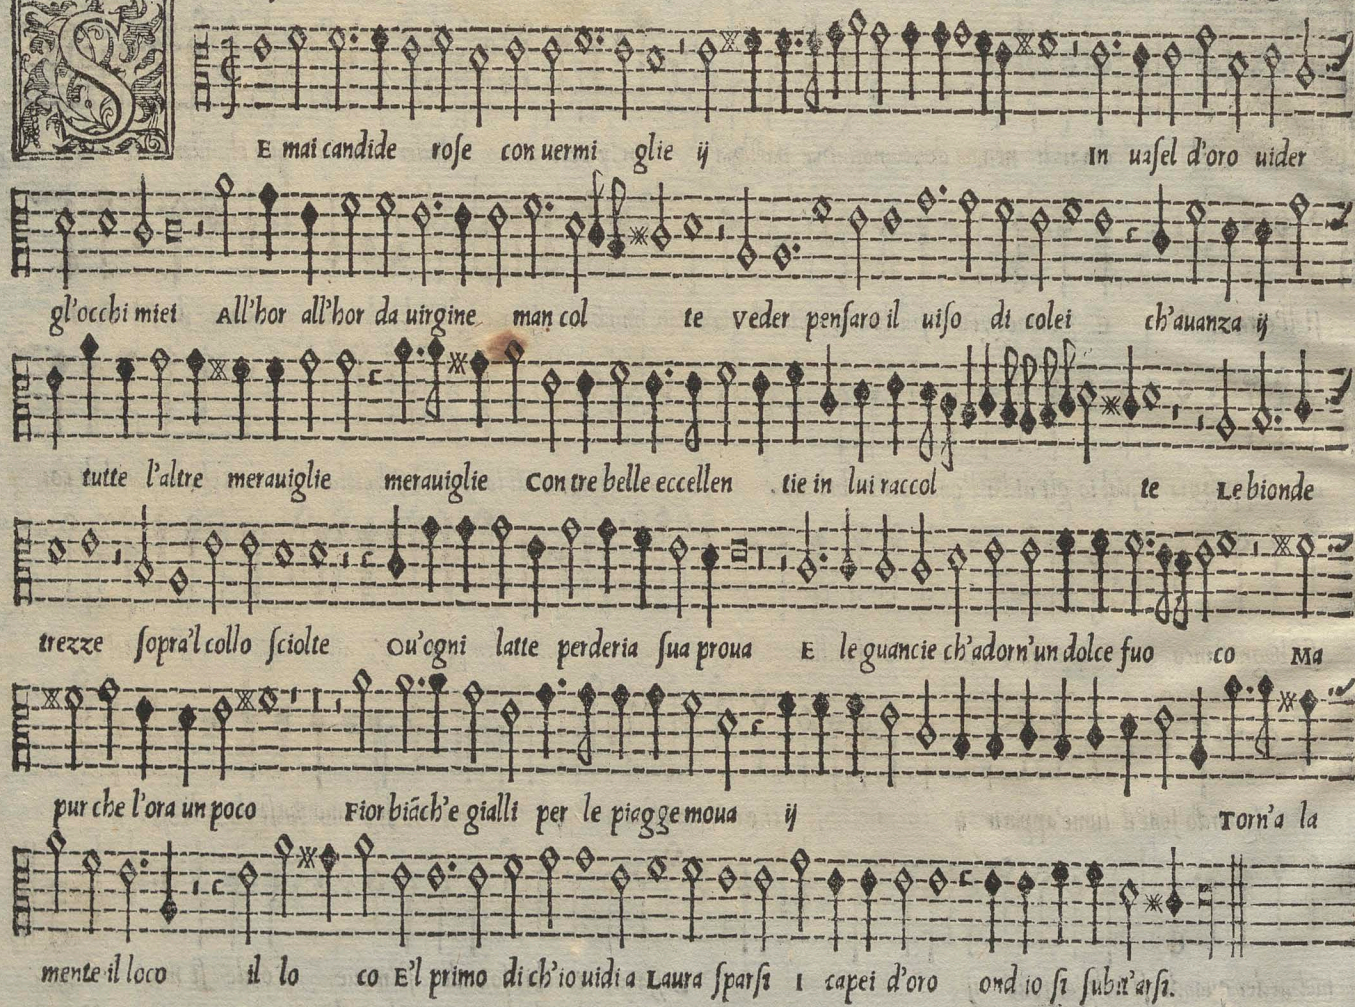 S
E mai candide rose con uermi glie ij In uasel d'oro uider
gl'occhi miei All'hor all'hor da uirgine man col te Veder pensaro il uiso di colei ch'auanza ij
tutte l'altre merauiglie merauiglie Con tre belle eccellen tie in lui raccol te Le bionde
trezze sopra'l collo sciolte Ou'ogni latte perderia sua proua E le guancie ch'adorn'un dolce fuo co Ma
pur che l'ora un poco Fior biãch'e gialli per le piagge moua ij Torn'a la
mente il loco il lo co E'l primo di ch'io uidi a Laura sparsi I capei d'oro ond io si subit'arsi.